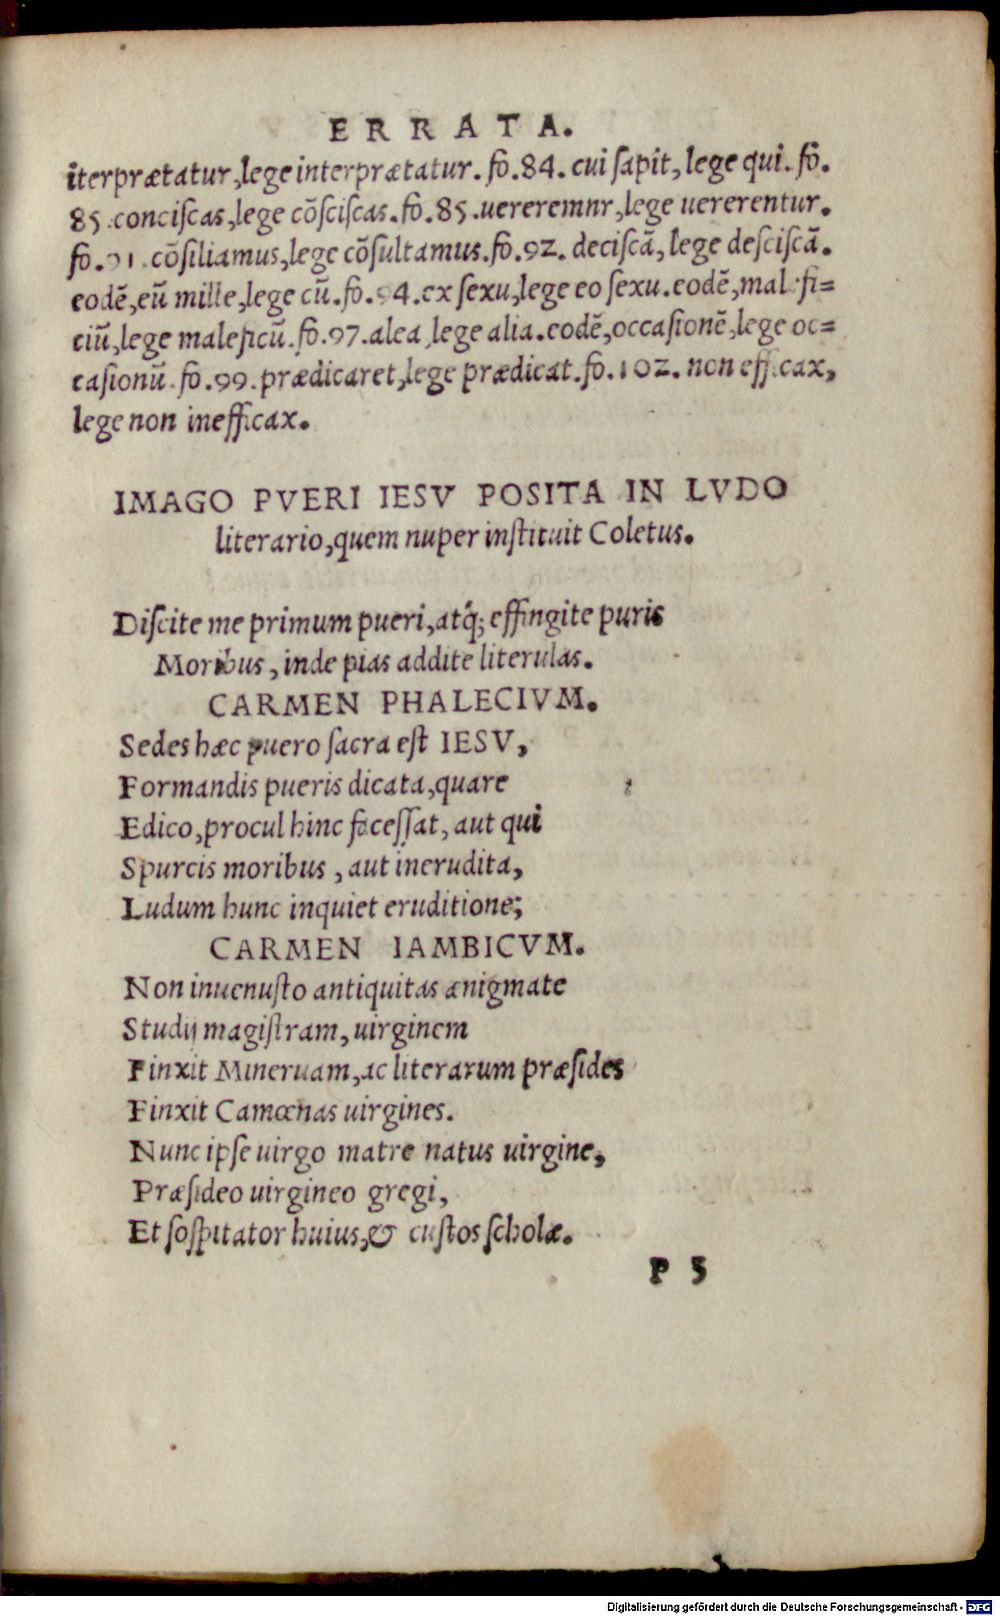 ERRATA.
iterprætatur, lege interprætatur. fo. 84. cui sapit, lege qui. fo.
85. conciscas, lege cōsciscas. fo. 85. uereremnr, lege uererentur.
fo. 91. cōsiliamus, lege cōsultamus. fo. 92. deciscā, lege desciscā.
eodē, eū mille, lege cū. fo. 94. ex sexu, lege eo sexu. eodē, malefi=
ciū, lege maleficū. fo. 97. alea, lege alia. eodē, occasionē, lege oc=
casionū. fo. 99. prædicaret, lege prædicat. fo. 102. non efficax,
lege non inefficax.
IMAGO PVERI IESV POSITA IN LVDO
literario, quem nuper instituit Coletus.
Discite me primum pueri, atq; effingite puris
Moribus, inde pias addite literulas.
CARMEN PHALECIVM.
Sedes hæc puero sacra est IESV,
Formandis pueris dicata, quare
Edico, procul hinc facessat, aut qui
Spurcis moribus, aut inerudita,
Ludum hunc inquiet eruditione;
CARMEN IAMBICVM.
Non inuenusto antiquitas ænigmate
Studij magistram, uirginem
Finxit Mineruam, ac literarum præsides
Finxit Camœnas uirgines.
Nunc ipse uirgo matre natus uirgine,
Præsideo uirgineo gregi,
Et sospitator huius, & custos scholæ.
P 5
Digitalisierung gefördert durch die Deutsche Forschungsgemeinschaft - DFG